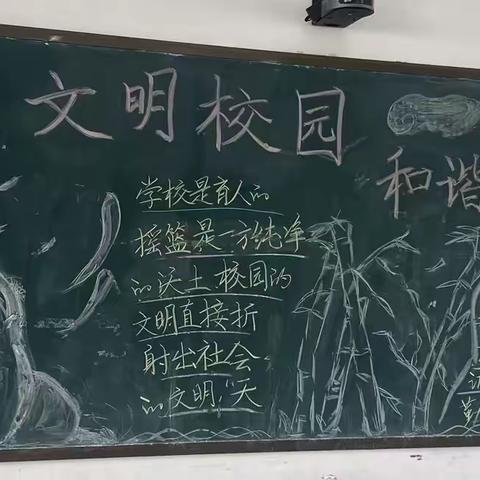 文明校园
和谐
学校是育人的
摇篮是一方纯净
的沃土校园的
文明直接折
射出社会
的文明,"天
勤